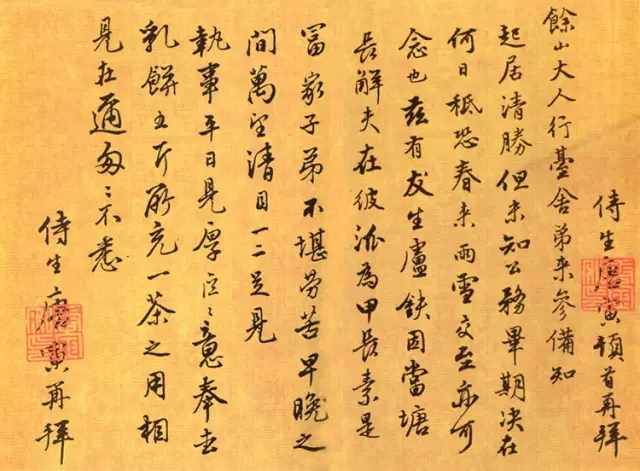 侍生唐寅頓首再拜
餘山大人行臺舍弟來參備知
起居清勝但未知公務畢期决在
何日秪恐春来雨雪交至亦可
念也茲有友生盧鈇因當塘
長解夫在彼泒為甲長素是
富家子弟不堪勞苦早晚之
間萬望清目一二足見
執事平日見厚區〻意奉去
乳餅五斤所充一茶之用相
見在邇匆〻不悉
侍生唐寅再拜